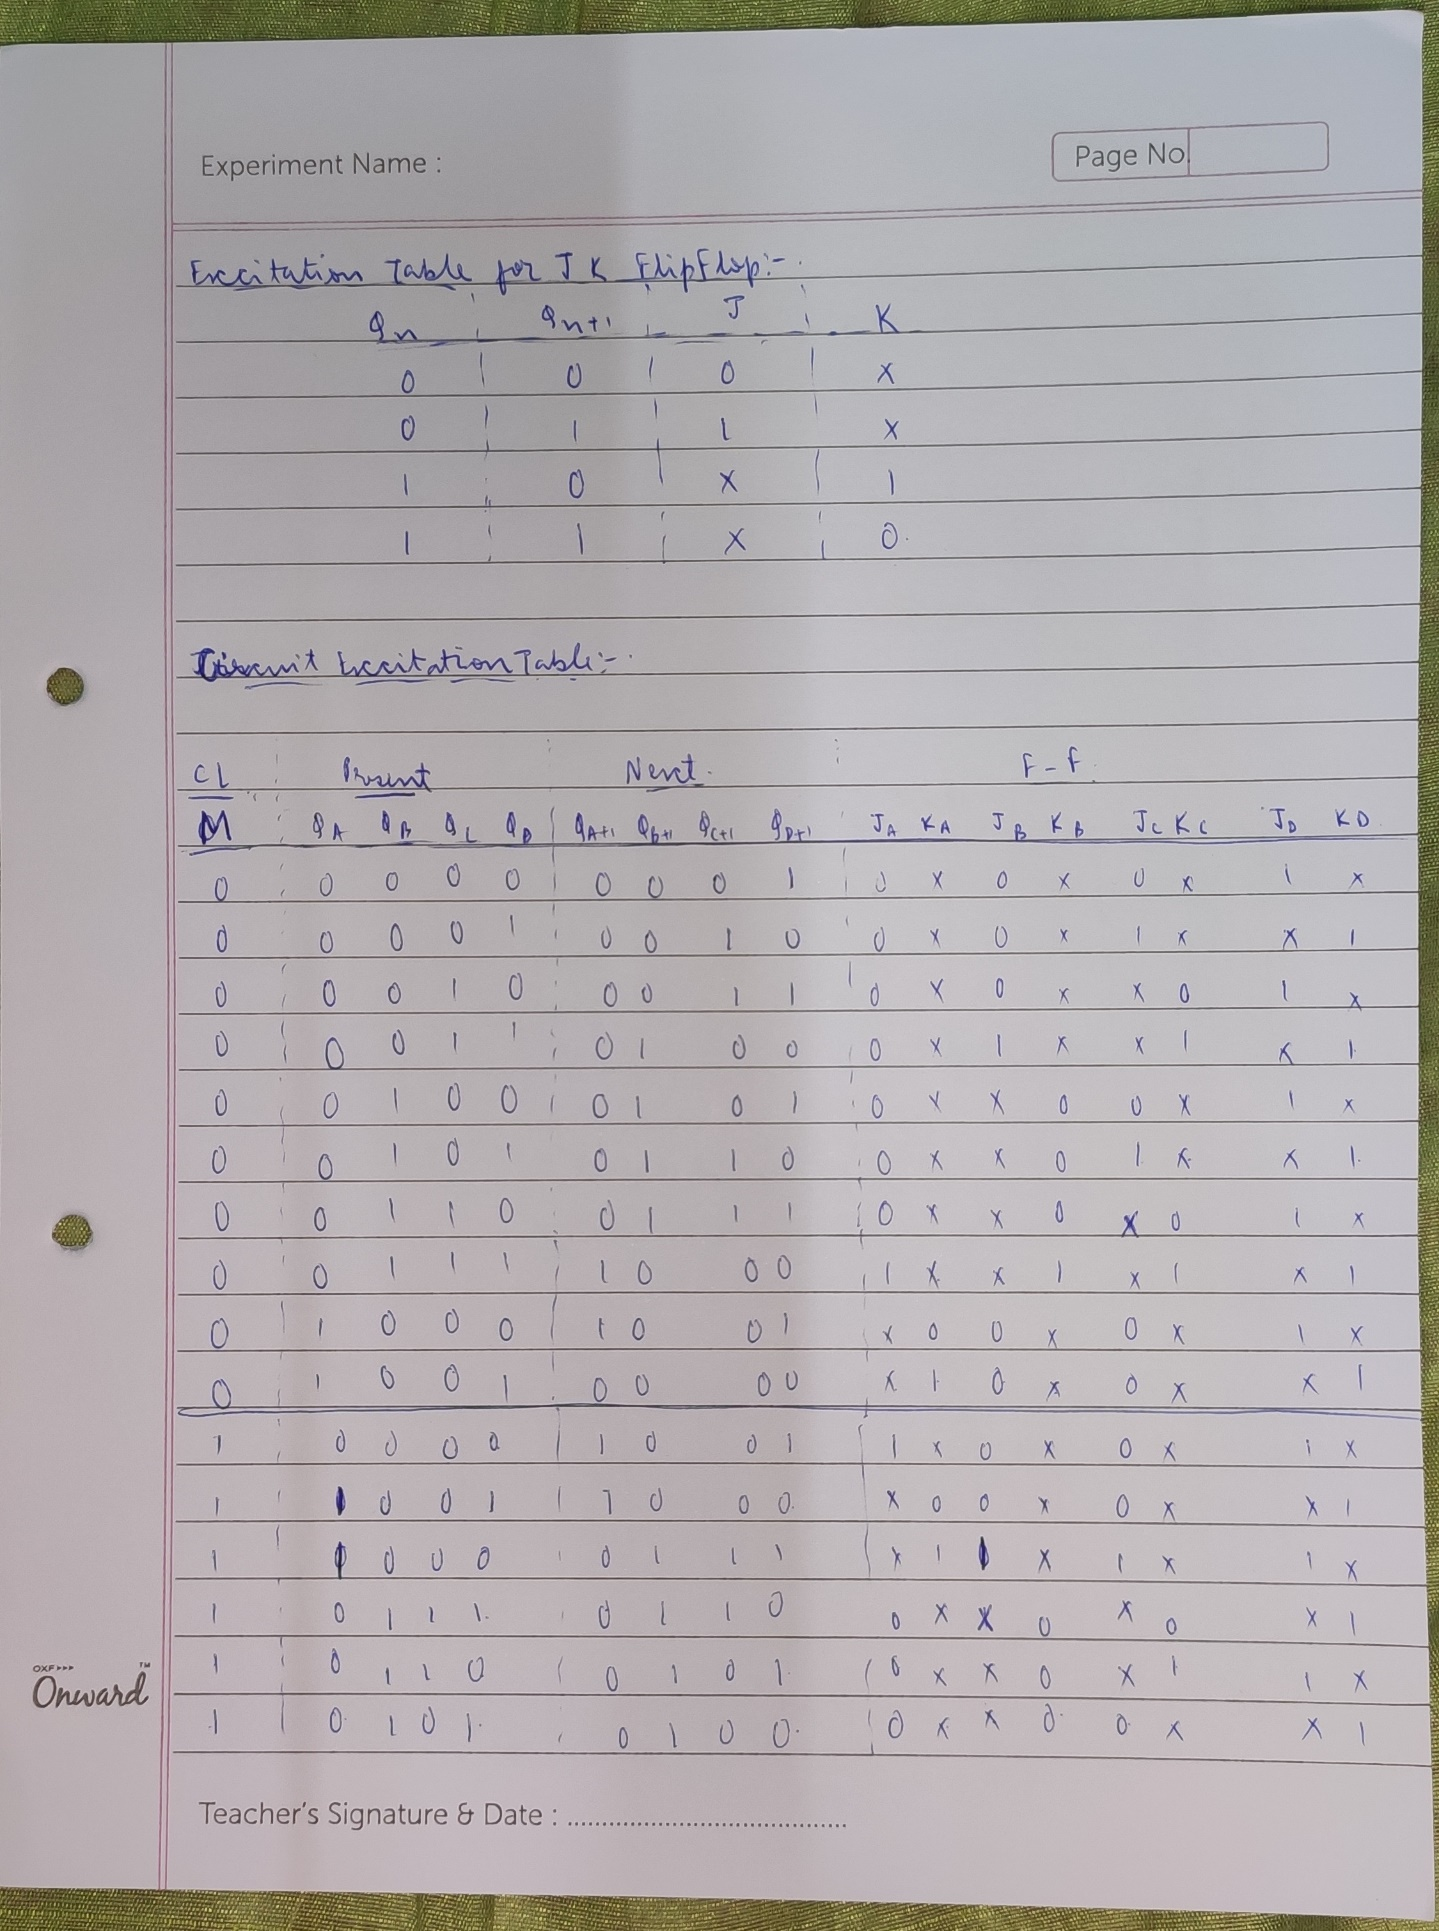 Experiment Name :
Page No.
Excitation Table for J K FlipFlop:-
Qn Qn+1 J K
0 0 0 x
0 1 1 x
1 0 x 1
1 1 x 0
Circuit Excitation Table:-
CL Present Next F-F
M QA QB QC QD QA+1 QB+1 QC+1 QD+1 JA KA JB KB JC KC JD KD
0 0 0 0 0 0 0 0 1 0 x 0 x 0 x 1 x
0 0 0 0 1 0 0 1 0 0 x 0 x 1 x x 1
0 0 0 1 0 0 0 1 1 0 x 0 x x 0 1 x
0 0 0 1 1 0 1 0 0 0 x 1 x x 1 x 1
0 0 1 0 0 0 1 0 1 0 x x 0 0 x 1 x
0 0 1 0 1 0 1 1 0 0 x x 0 1 x x 1
0 0 1 1 0 0 1 1 1 0 x x 0 x 0 1 x
0 0 1 1 1 1 0 0 0 1 x x 1 x 1 x 1
0 1 0 0 0 1 0 0 1 x 0 0 x 0 x 1 x
0 1 0 0 1 0 0 0 0 x 1 0 x 0 x x 1
1 0 0 0 0 1 0 0 1 1 x 0 x 0 x 1 x
1 1 0 0 1 1 0 0 0 x 0 0 x 0 x x 1
1 1 0 0 0 0 1 1 1 x 1 1 x 1 x 1 x
1 0 1 1 1 0 1 1 0 0 x x 0 x 0 x 1
1 0 1 1 0 0 1 0 1 0 x x 0 x 1 1 x
1 0 1 0 1 0 1 0 0 0 x x 0 0 x x 1
OXF>>> TM
Onward
Teacher's Signature & Date : ..........................................